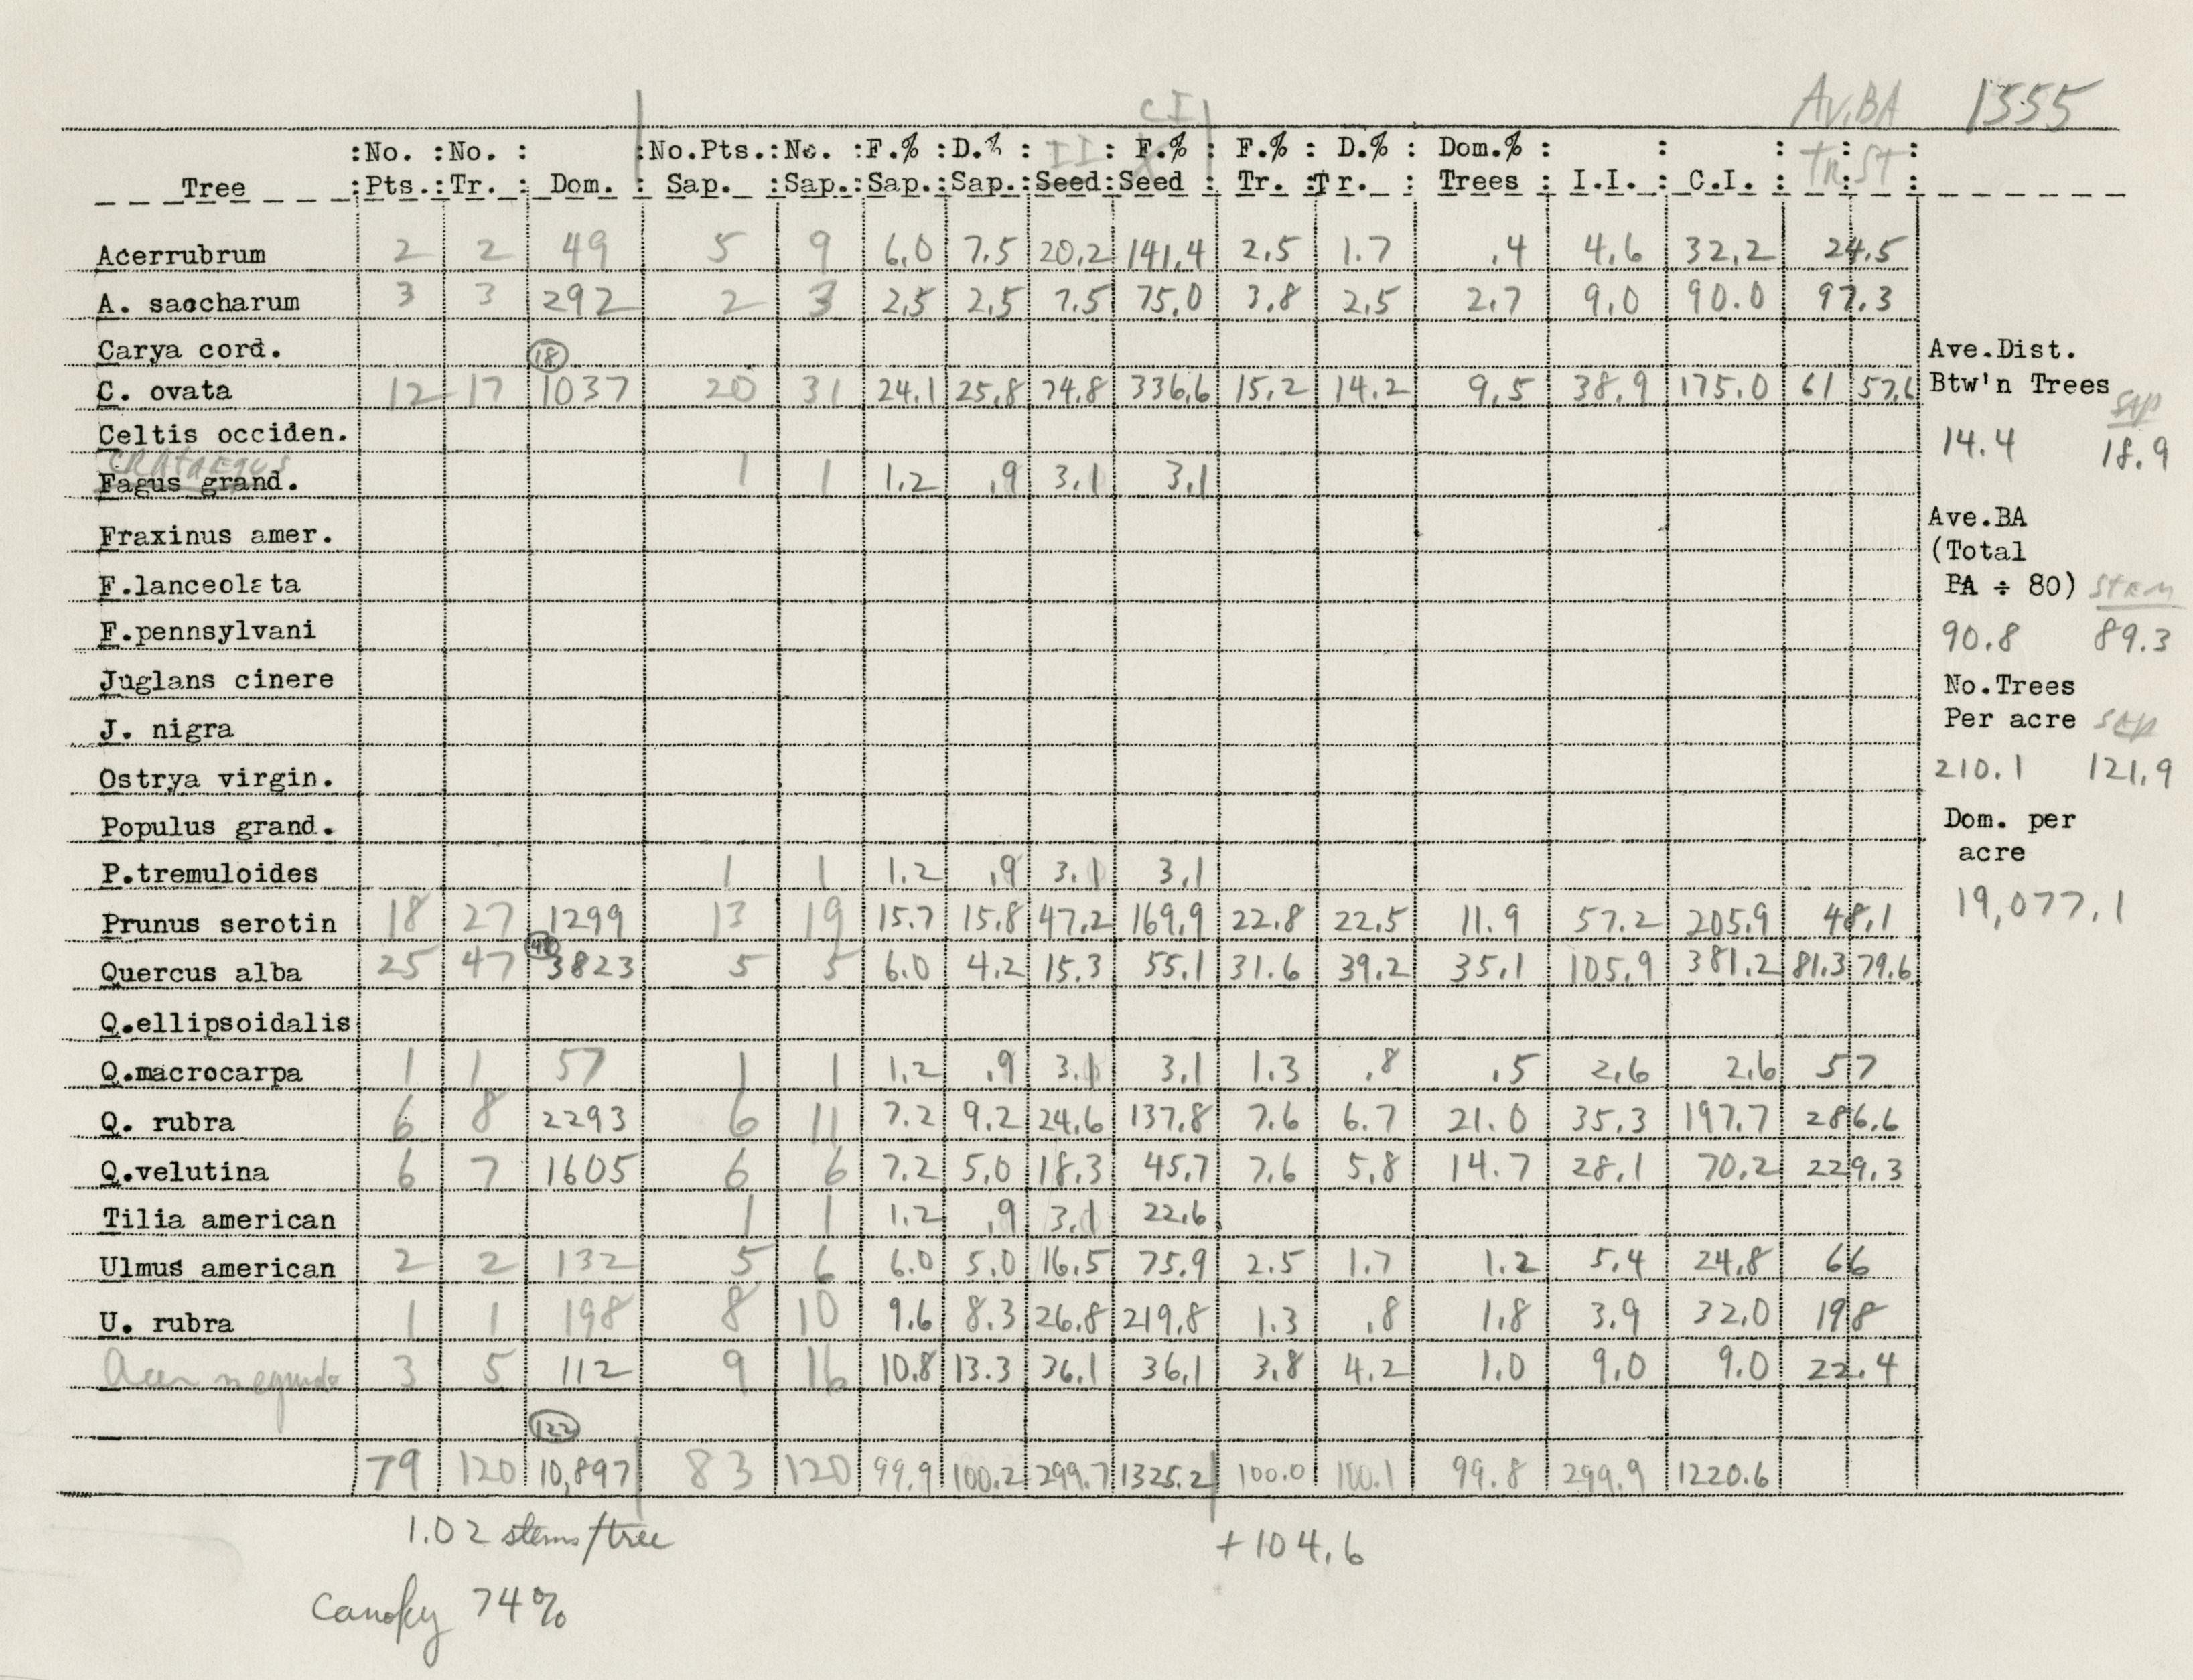 Av.BA 1555
CI
:No. :No. : :No.Pts.:No. :F.% :D.% : II : F.% : F.% : D.% : Dom.% : : : : :
Tree :Pts.:Tr. : Dom. : Sap. :Sap.:Sap.:Sap.:Seed:Seed : Tr. :Tr. : Trees : I.I. : C.I. : TR. ST :
Acerrubrum 2 2 49 5 9 6.0 7.5 20.2 141.4 2.5 1.7 .4 4.6 32.2 24.5
A. saccharum 3 3 292 2 3 2.5 2.5 7.5 75.0 3.8 2.5 2.7 9.0 90.0 97.3
Carya cord. 18 Ave.Dist.
C. ovata 12 17 1037 20 31 24.1 25.8 74.8 336.6 15.2 14.2 9.5 38.9 175.0 61 57.6 Btw'n Trees
SAP
Celtis occiden. 14.4 18.9
CRATAEGUS
Fagus grand. 1 1 1.2 .9 3.1 3.1
Fraxinus amer. Ave.BA
(Total
F.lanceolata BA ÷ 80) STEM
F.pennsylvani 90.8 89.3
Juglans cinere No.Trees
J. nigra Per acre SAP
Ostrya virgin. 210.1 121.9
Populus grand. Dom. per
acre
P.tremuloides 1 1 1.2 .9 3.1 3.1
Prunus serotin 18 27 1299 13 19 15.7 15.8 47.2 169.9 22.8 22.5 11.9 57.2 205.9 48.1 19,077.1
Quercus alba 25 47 48 3823 5 5 6.0 4.2 15.3 55.1 31.6 39.2 35.1 105.9 381.2 81.3 79.6
Q.ellipsoidalis
Q.macrocarpa 1 1 57 1 1 1.2 .9 3.1 3.1 1.3 .8 .5 2.6 2.6 57
Q. rubra 6 8 2293 6 11 7.2 9.2 24.6 137.8 7.6 6.7 21.0 35.3 197.7 286.6
Q.velutina 6 7 1605 6 6 7.2 5.0 18.3 45.7 7.6 5.8 14.7 28.1 70.2 229.3
Tilia american 1 1 1.2 .9 3.1 22.6
Ulmus american 2 2 132 5 6 6.0 5.0 16.5 75.9 2.5 1.7 1.2 5.4 24.8 66
U. rubra 1 1 198 8 10 9.6 8.3 26.8 219.8 1.3 .8 1.8 3.9 32.0 198
Acer negundo 3 5 112 9 16 10.8 13.3 36.1 36.1 3.8 4.2 1.0 9.0 9.0 22.4
122
79 120 10,897 83 120 99.9 100.2 299.7 1325.2 100.0 100.1 99.8 299.9 1220.6
1.02 stems/tree +104.6
canopy 74%